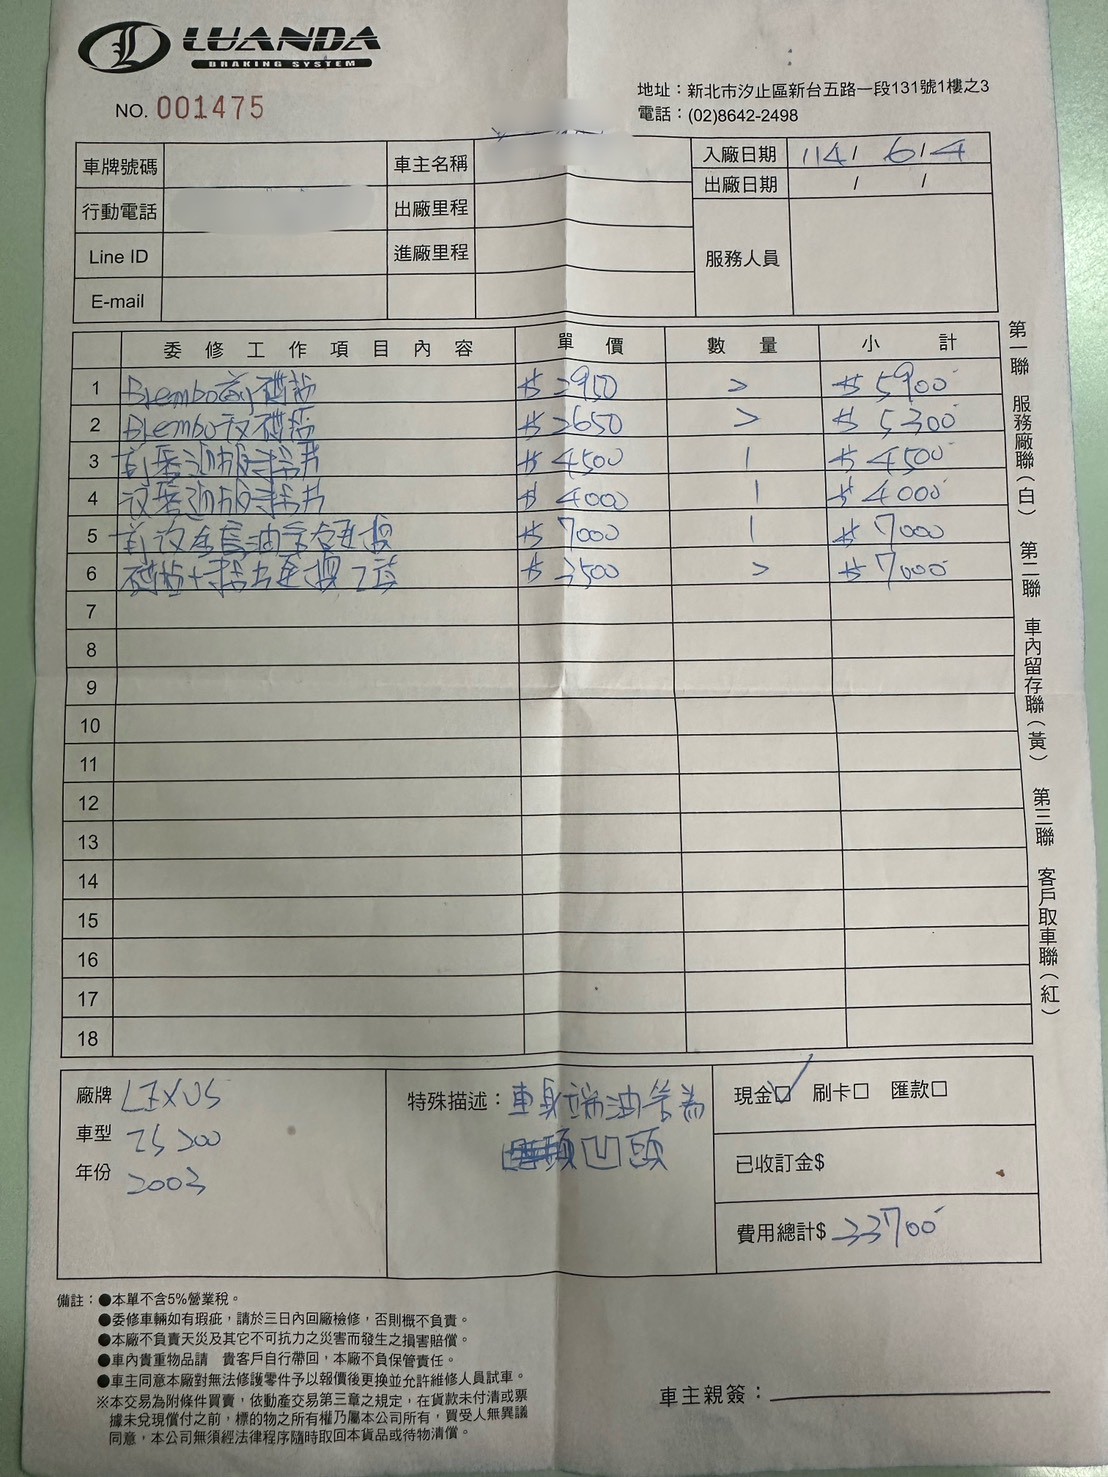 LUANDA
BRAKING SYSTEM
NO. 001475
地址：新北市汐止區新台五路一段131號1樓之3
電話：(02)8642-2498
車牌號碼 車主名稱 入廠日期 114/ 6/4
出廠日期 / /
行動電話 出廠里程
Line ID 進廠里程 服務人員
E-mail
委修工作項目內容 單價 數量 小計
1 Brembo前 $2950 2 $5900
2 Brembo $2650 2 $5300
3 $4500 1 $4500
4 $4000 1 $4000
5 油管更換 $7000 1 $7000
6 更換工資 $3500 2 $7000
7
8
9
10
11
12
13
14
15
16
17
18
第一聯 服務廠聯（白） 第二聯 車內留存聯（黃） 第三聯 客戶取車聯（紅）
廠牌 LEXUS
車型 IS 200
年份 2003
特殊描述：車身端油管為
凹頭
現金☑ 刷卡□ 匯款□
已收訂金$
費用總計$ 33700
備註：●本單不含5%營業稅。
●委修車輛如有瑕疵，請於三日內回廠檢修，否則概不負責。
●本廠不負責天災及其它不可抗力之災害而發生之損害賠償。
●車內貴重物品請 貴客戶自行帶回，本廠不負保管責任。
●車主同意本廠對無法修護零件予以報價後更換並允許維修人員試車。
※本交易為附條件買賣，依動產交易第三章之規定，在貨款未付清或票
據未兌現償付之前，標的物之所有權乃屬本公司所有，買受人無異議
同意，本公司無須經法律程序隨時取回本貨品或待物清償。
車主親簽：